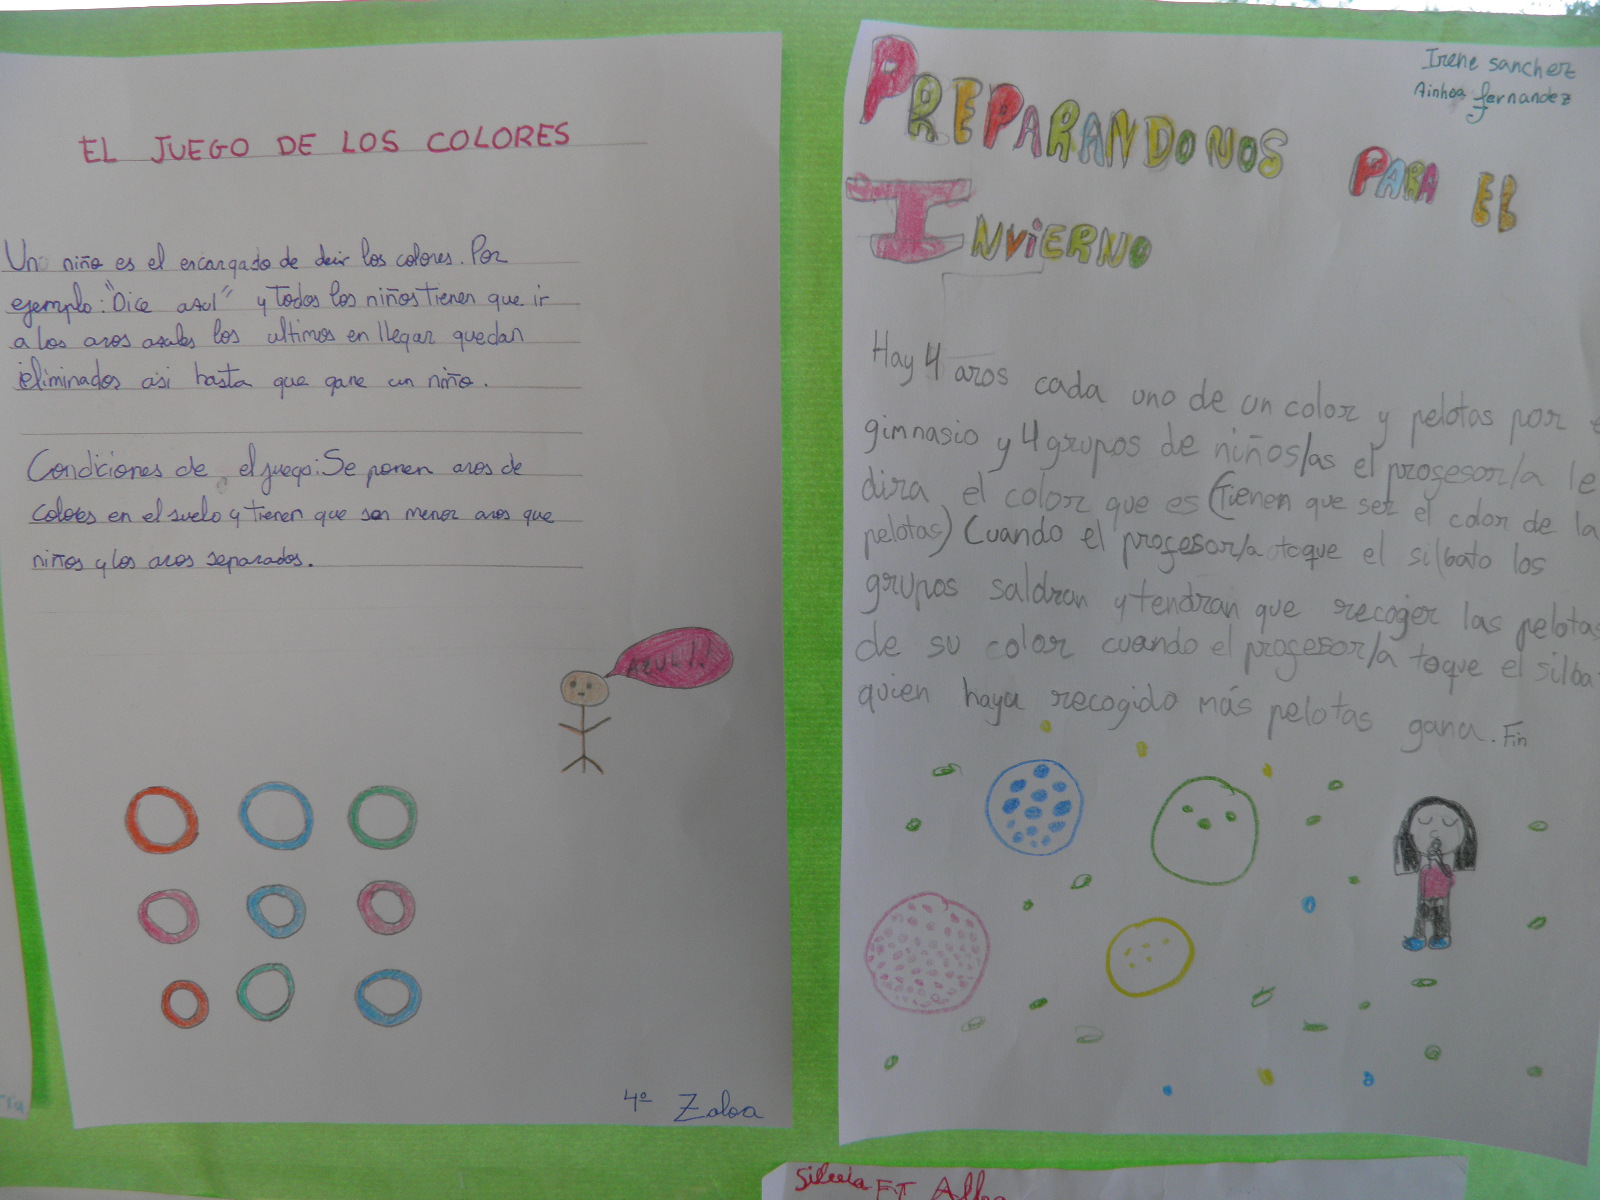 EL JUEGO DE LOS COLORES
Un niño es el encargado de decir los colores. Por
ejemplo: "Dice asul" y todos los niños tienen que ir
a los aros asules los ultimos en llegar quedan
eliminados asi hasta que gane un niño.
Condiciones de el juego: Se ponen aros de
colores en el suelo y tienen que ser menor aros que
niños y los aros separados.
AZUL!!
4º Zaloa
Irene sanchez
Ainhoa fernandez
PREPARANDONOS PARA EL
INVIERNO
Hay 4 aros cada uno de un color y pelotas por e
gimnasio y 4 grupos de niños/as el profesor/a le
dira el color que es (Tienen que ser el color de la
pelotas) Cuando el profesor/a toque el silbato los
grupos saldran y tendran que recoger las pelotas
de su color cuando el profesor/a toque el silba
quien haya recogido más pelotas gana. Fin